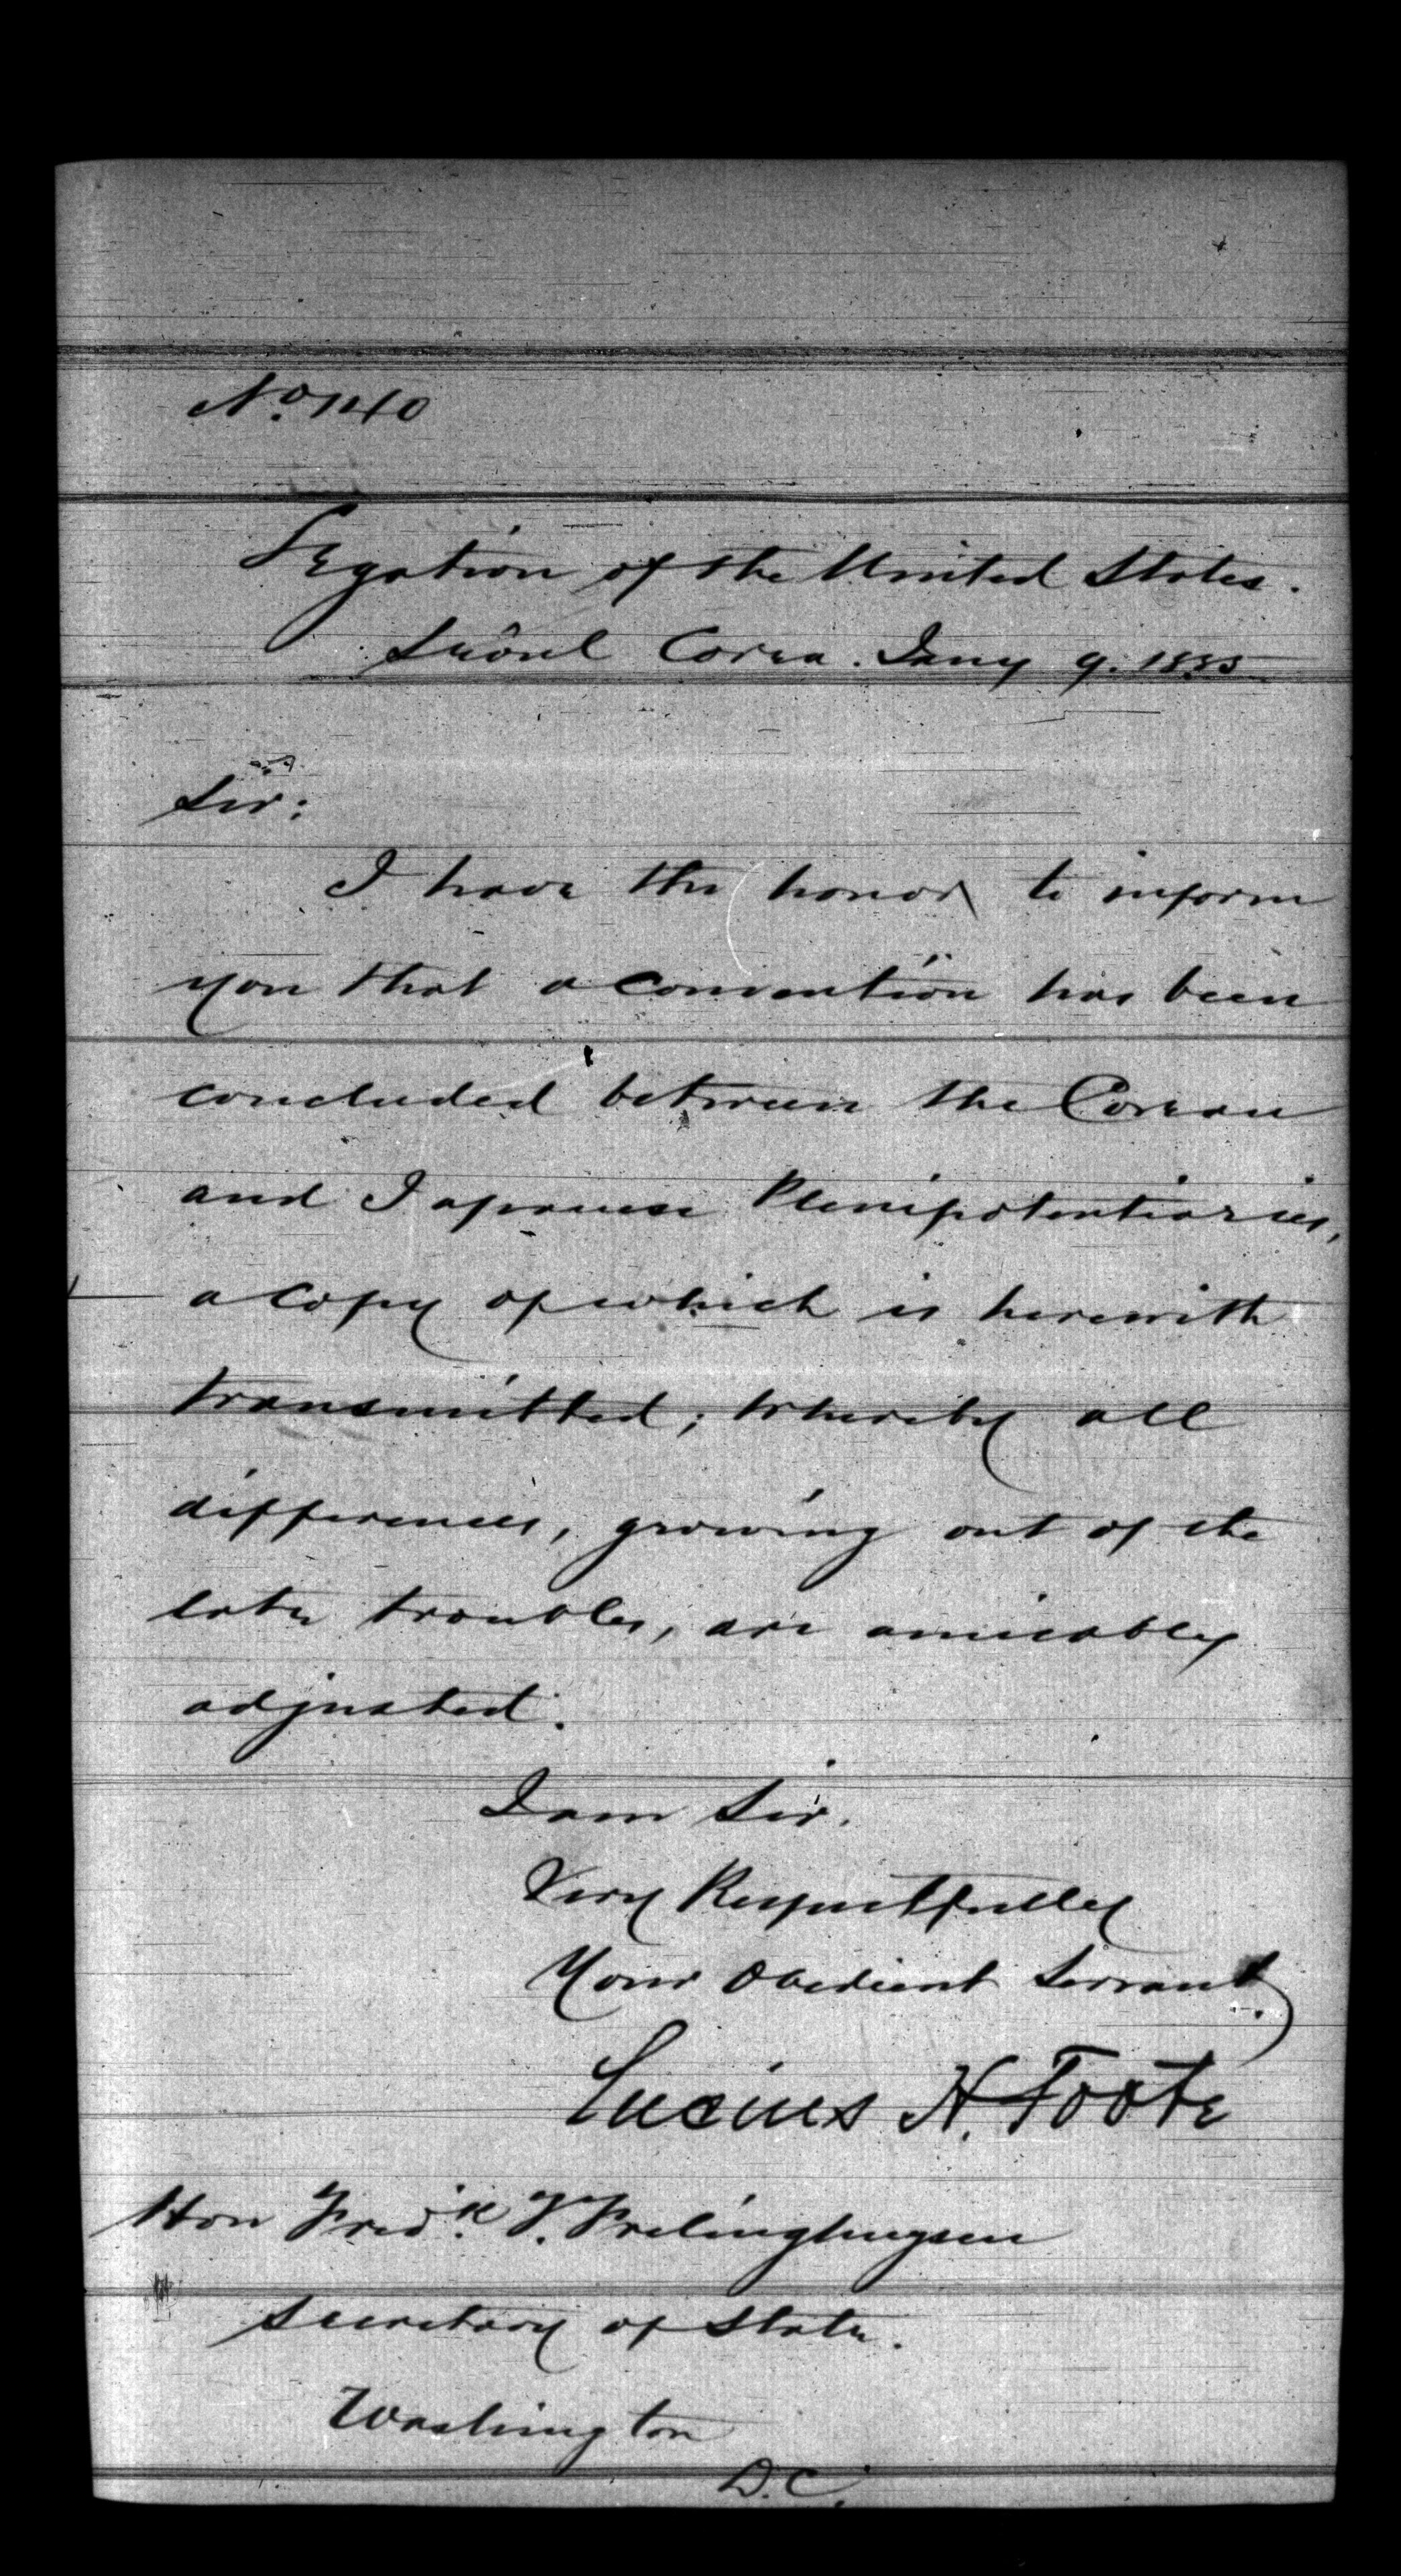 No. 140
Legation of the United States.
Suôul Corea. Jany 9. 1885
Sir:
I have the honor to inform
you that a convention has been
concluded between the Corean
and Japanese Plenipotentiaries,
a copy of which is herewith
transmitted; whereby all
differences, growing out of the
late troubles, are amicably
adjusted.
I am Sir.
Very Respectfully
Your Obedient Servant.
Lucius H. Foote
Hon Fredk. T. Frelinghuysen
Secretary of State.
Washington
D.C.